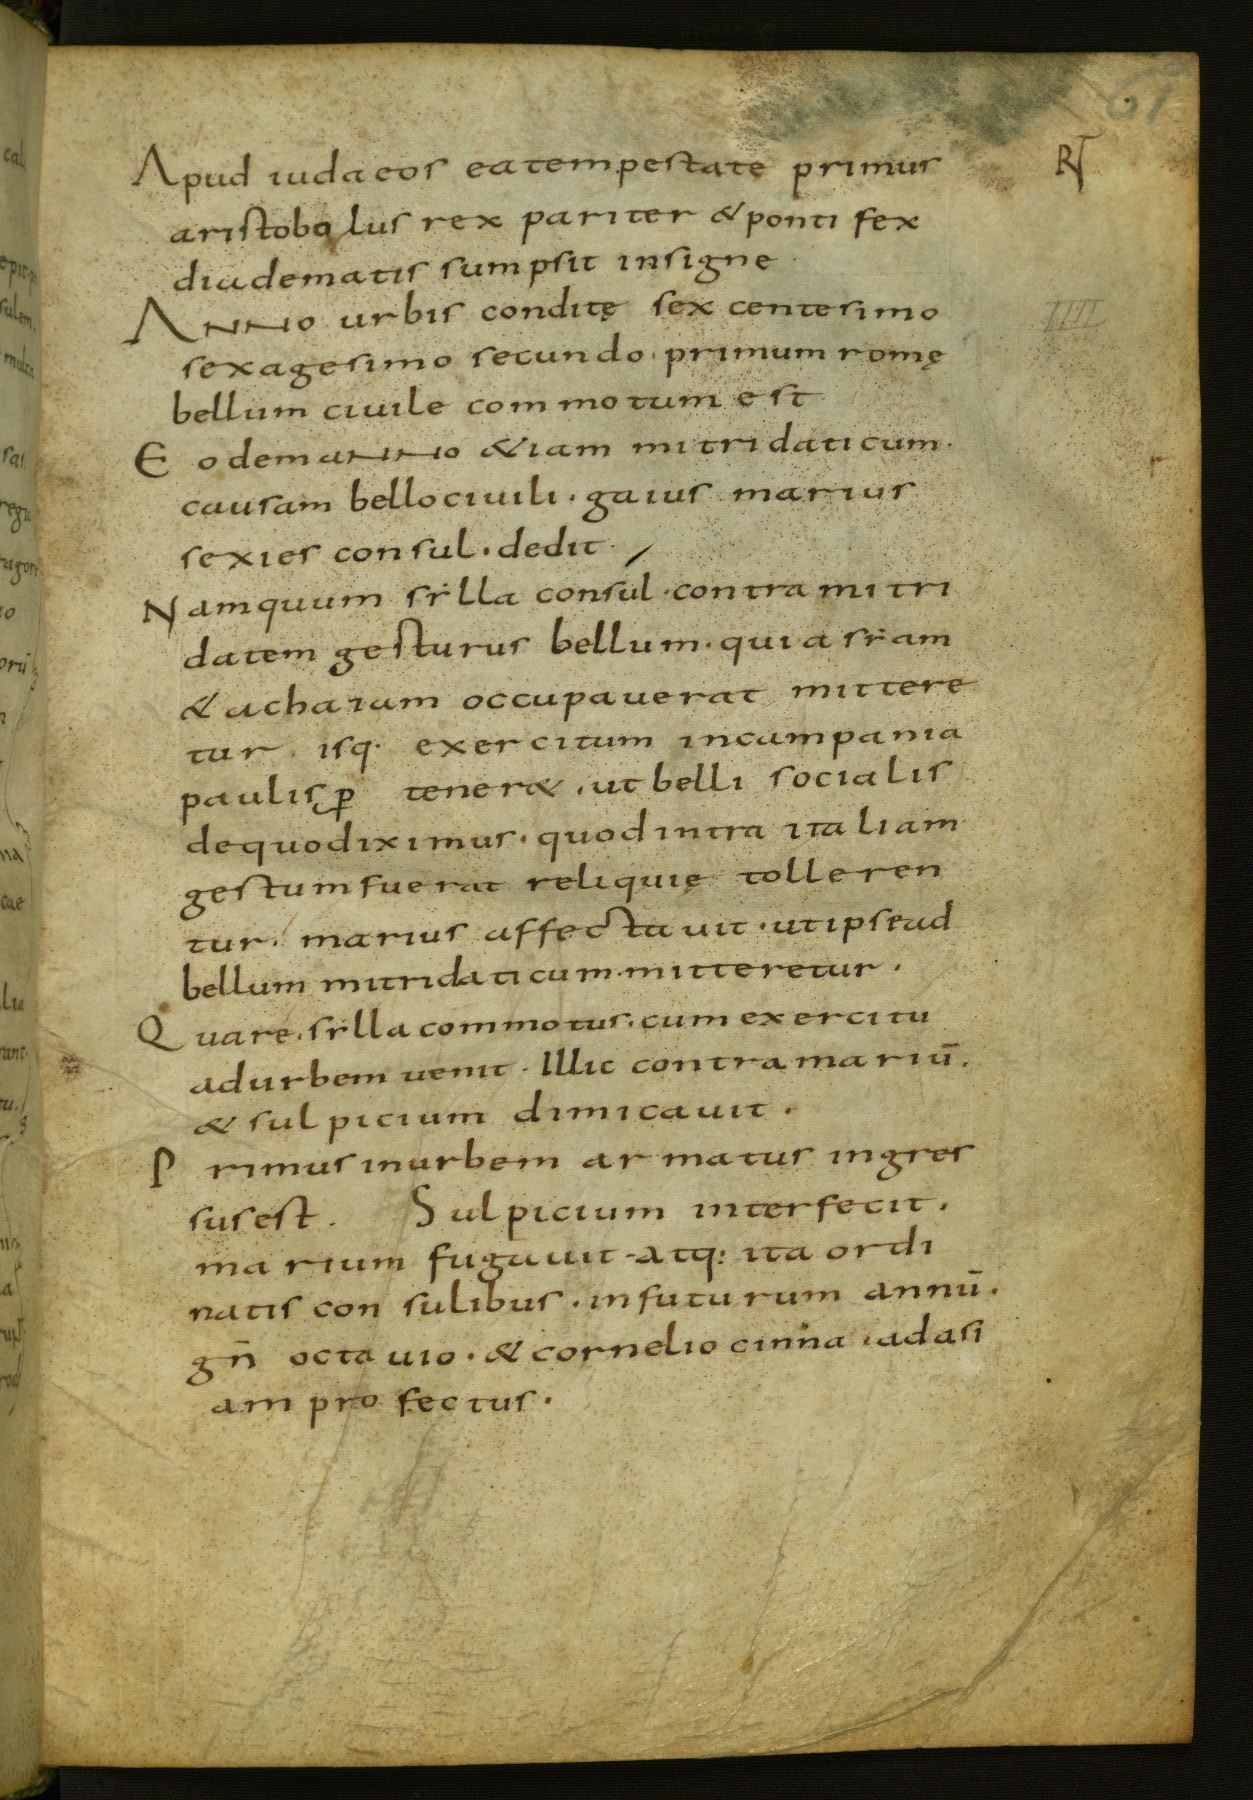 61
Apud iudaeos ea tempestate primus
RT
aristobolus rex pariter & ponti fex
diadematis sumpsit insigne
ANNO urbis conditę sex centesimo
IIII
sexagesimo secundo · primum romę
bellum ciuile commotum est
Eodem aNNo &iam mitridaticum ·
causam bello ciuili · gaius marius
sexies consul · dedit ·
Nam quum sẏlla consul · contra mitri
datem gesturus bellum · qui asẏam
& achaiam occupauerat mittere
tur · isq· exercitum in campania
paulisꝑ tener& · ut belli socialis
de quo diximus · quod intra italiam
gestum fuerat reliquię tolleren
tur · marius affectauit · ut ipse ad
bellum mitridaticum · mitteretur ·
Quare · sẏlla commotus · cum exercitu
ad urbem uenit · Illic contra mariū ·
& sulpicium dimicauit ·
Primus in urbem armatus ingres
sus est · Sulpicium interfecit ·
marium fugauit · atq: ita ordi
natis con sulibus · in futurum annū ·
gn̄ octauio · & cornelio cinna · ad asi
am profectus ·